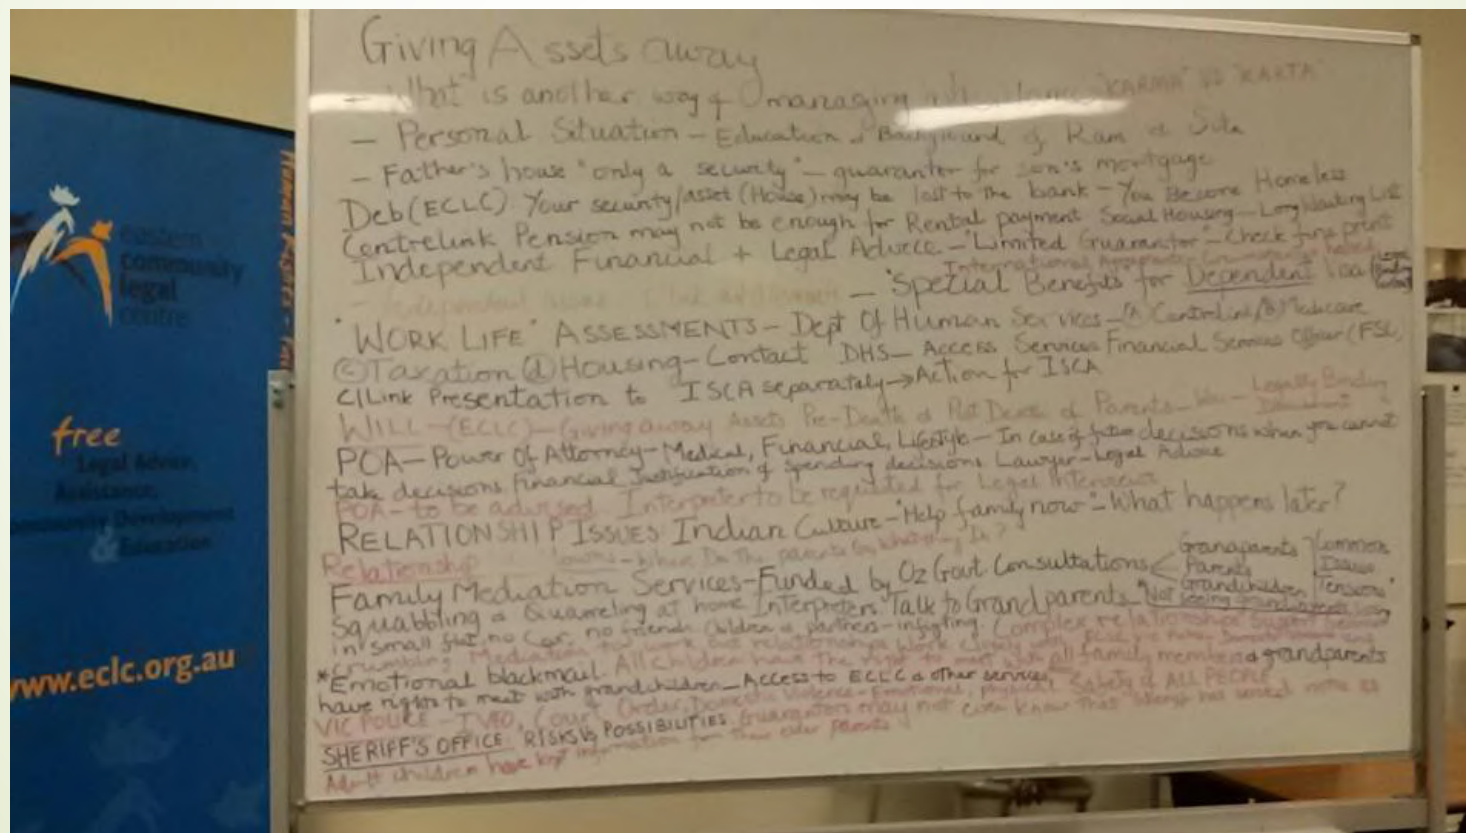 eastern
community
legal
centre
free
Legal Advice,
Assistance,
Community Development
& Education
www.eclc.org.au
Giving Assets away
- What is another way of managing "KARMA" VS "KARTA"
- Personal Situation - Education & Background of Ram & Sita
- Father's house "only a security" - guarantor for son's mortgage
Deb (ECLC) Your security/asset (House) may be lost to the bank - You Become Homeless
Centrelink Pension may not be enough for Rental payment Social Housing - Long Waiting List
Independent Financial + Legal Advice - "Limited Guarantor" - Check fine print
International
- "Special Benefits" for Dependent Visa
"WORK LIFE" ASSESSMENTS - Dept Of Human Services - (A) Centrelink (B) Medicare
(C) Taxation (d) Housing - Contact DHS - Access Services Financial Services Officer (FSO)
C/Link Presentation to ISCA separately → Action for ISCA
WILL - (ECLC) - Giving away Assets Pre-Death & Post Death of Parents - Legally Binding
POA - Power Of Attorney - Medical, Financial, Lifestyle - In case of future decisions when you cannot
take decisions. Financial Justification of spending decisions Lawyer - Legal Advice
POA - to be advised Interpreter to be requested for Legal Interviews
RELATIONSHIP ISSUES: Indian Culture - "Help family now" - What happens later?
Relationship - Where Do the parents
Family Mediation Services - Funded by Oz Govt. Consultations Grandparents Parents Grandchildren Common Issues Tensions
Squabbling & Quarreling at home Interpreters Talk to Grandparents "Not seeing grandparents
in small flat, no car, no friends Children & partners - infighting. Complex relationships
Crumbling Mediation to work out relationships Work closely
* Emotional blackmail. All children have the right to meet with all family members & grandparents
have rights to meet with grandchildren - Access to ECLC & other services, Safety of ALL PEOPLE
VIC POLICE - IVO, Court Order, Domestic Violence - Emotional, physical
SHERIFF'S OFFICE: RISKS Vs POSSIBILITIES. Guarantors may not even know that Sheriff has served notice as
Adult children have kept information from their elder parents